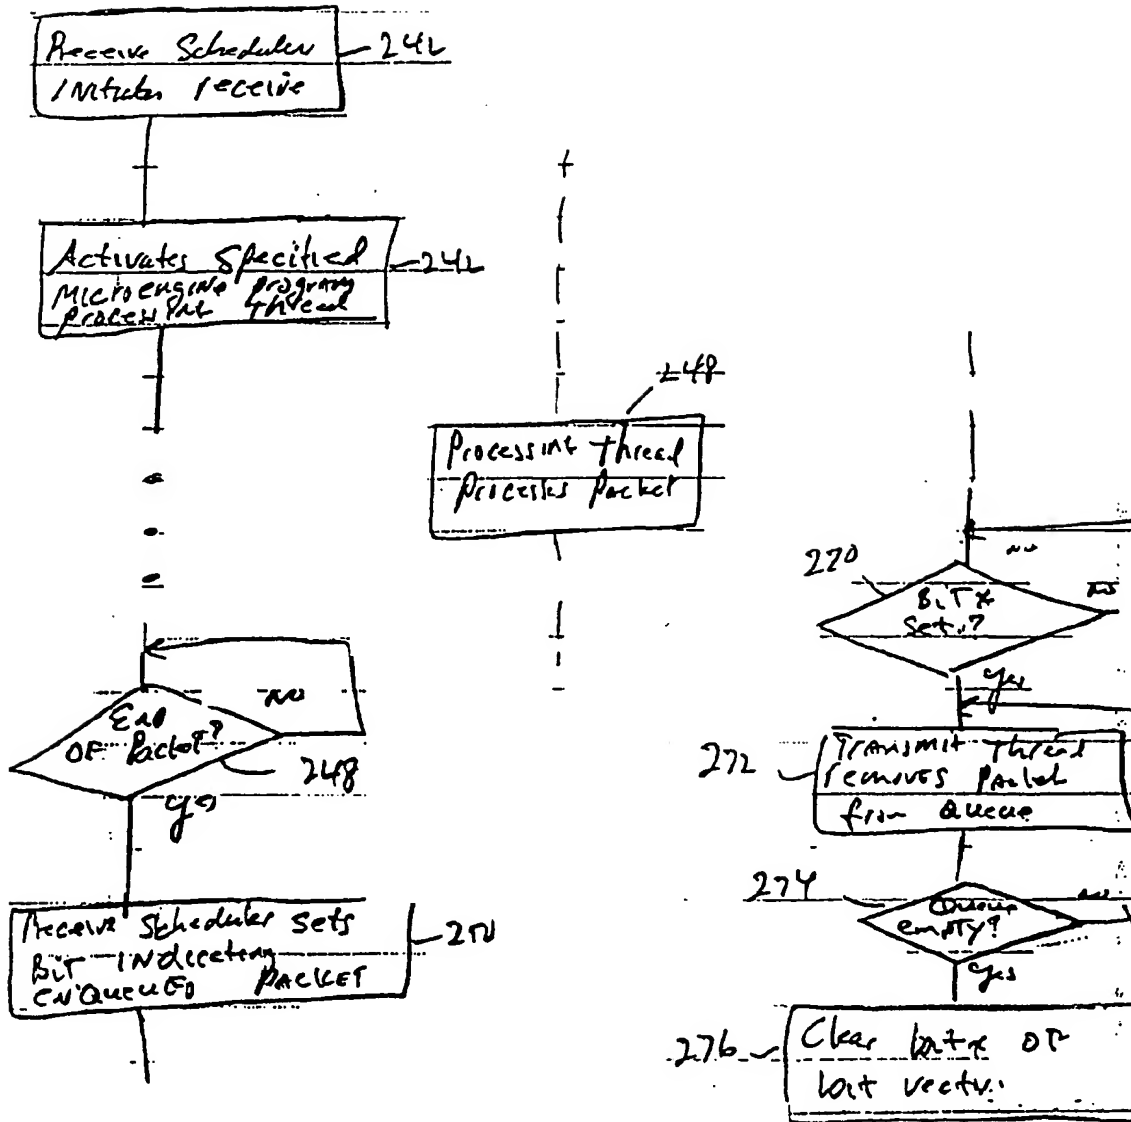 Receive Scheduler
Initiates receive
242
Activates Specified
Microengine program
processing thread
242
248
Processing thread
Processes Packet
End
OF Packet?
NO
248
yes
Receive Scheduler Sets
BiT indicating
ENQUEUED PACKET
270
BiT x
Set?
no
no
yes
272
Transmit Thread
removes Packet
from Queue
274
Queue
empty?
no
yes
276
Clear bit x OF
bit vector